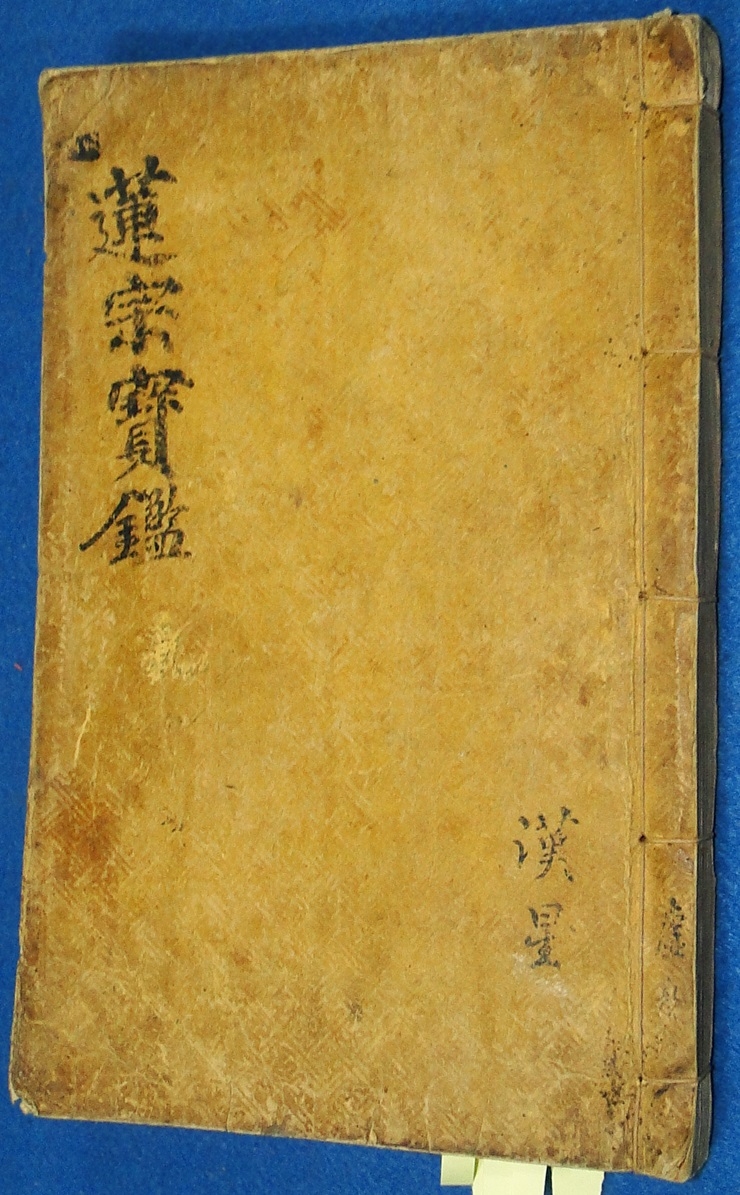 蓮宗寶鑑
漢星